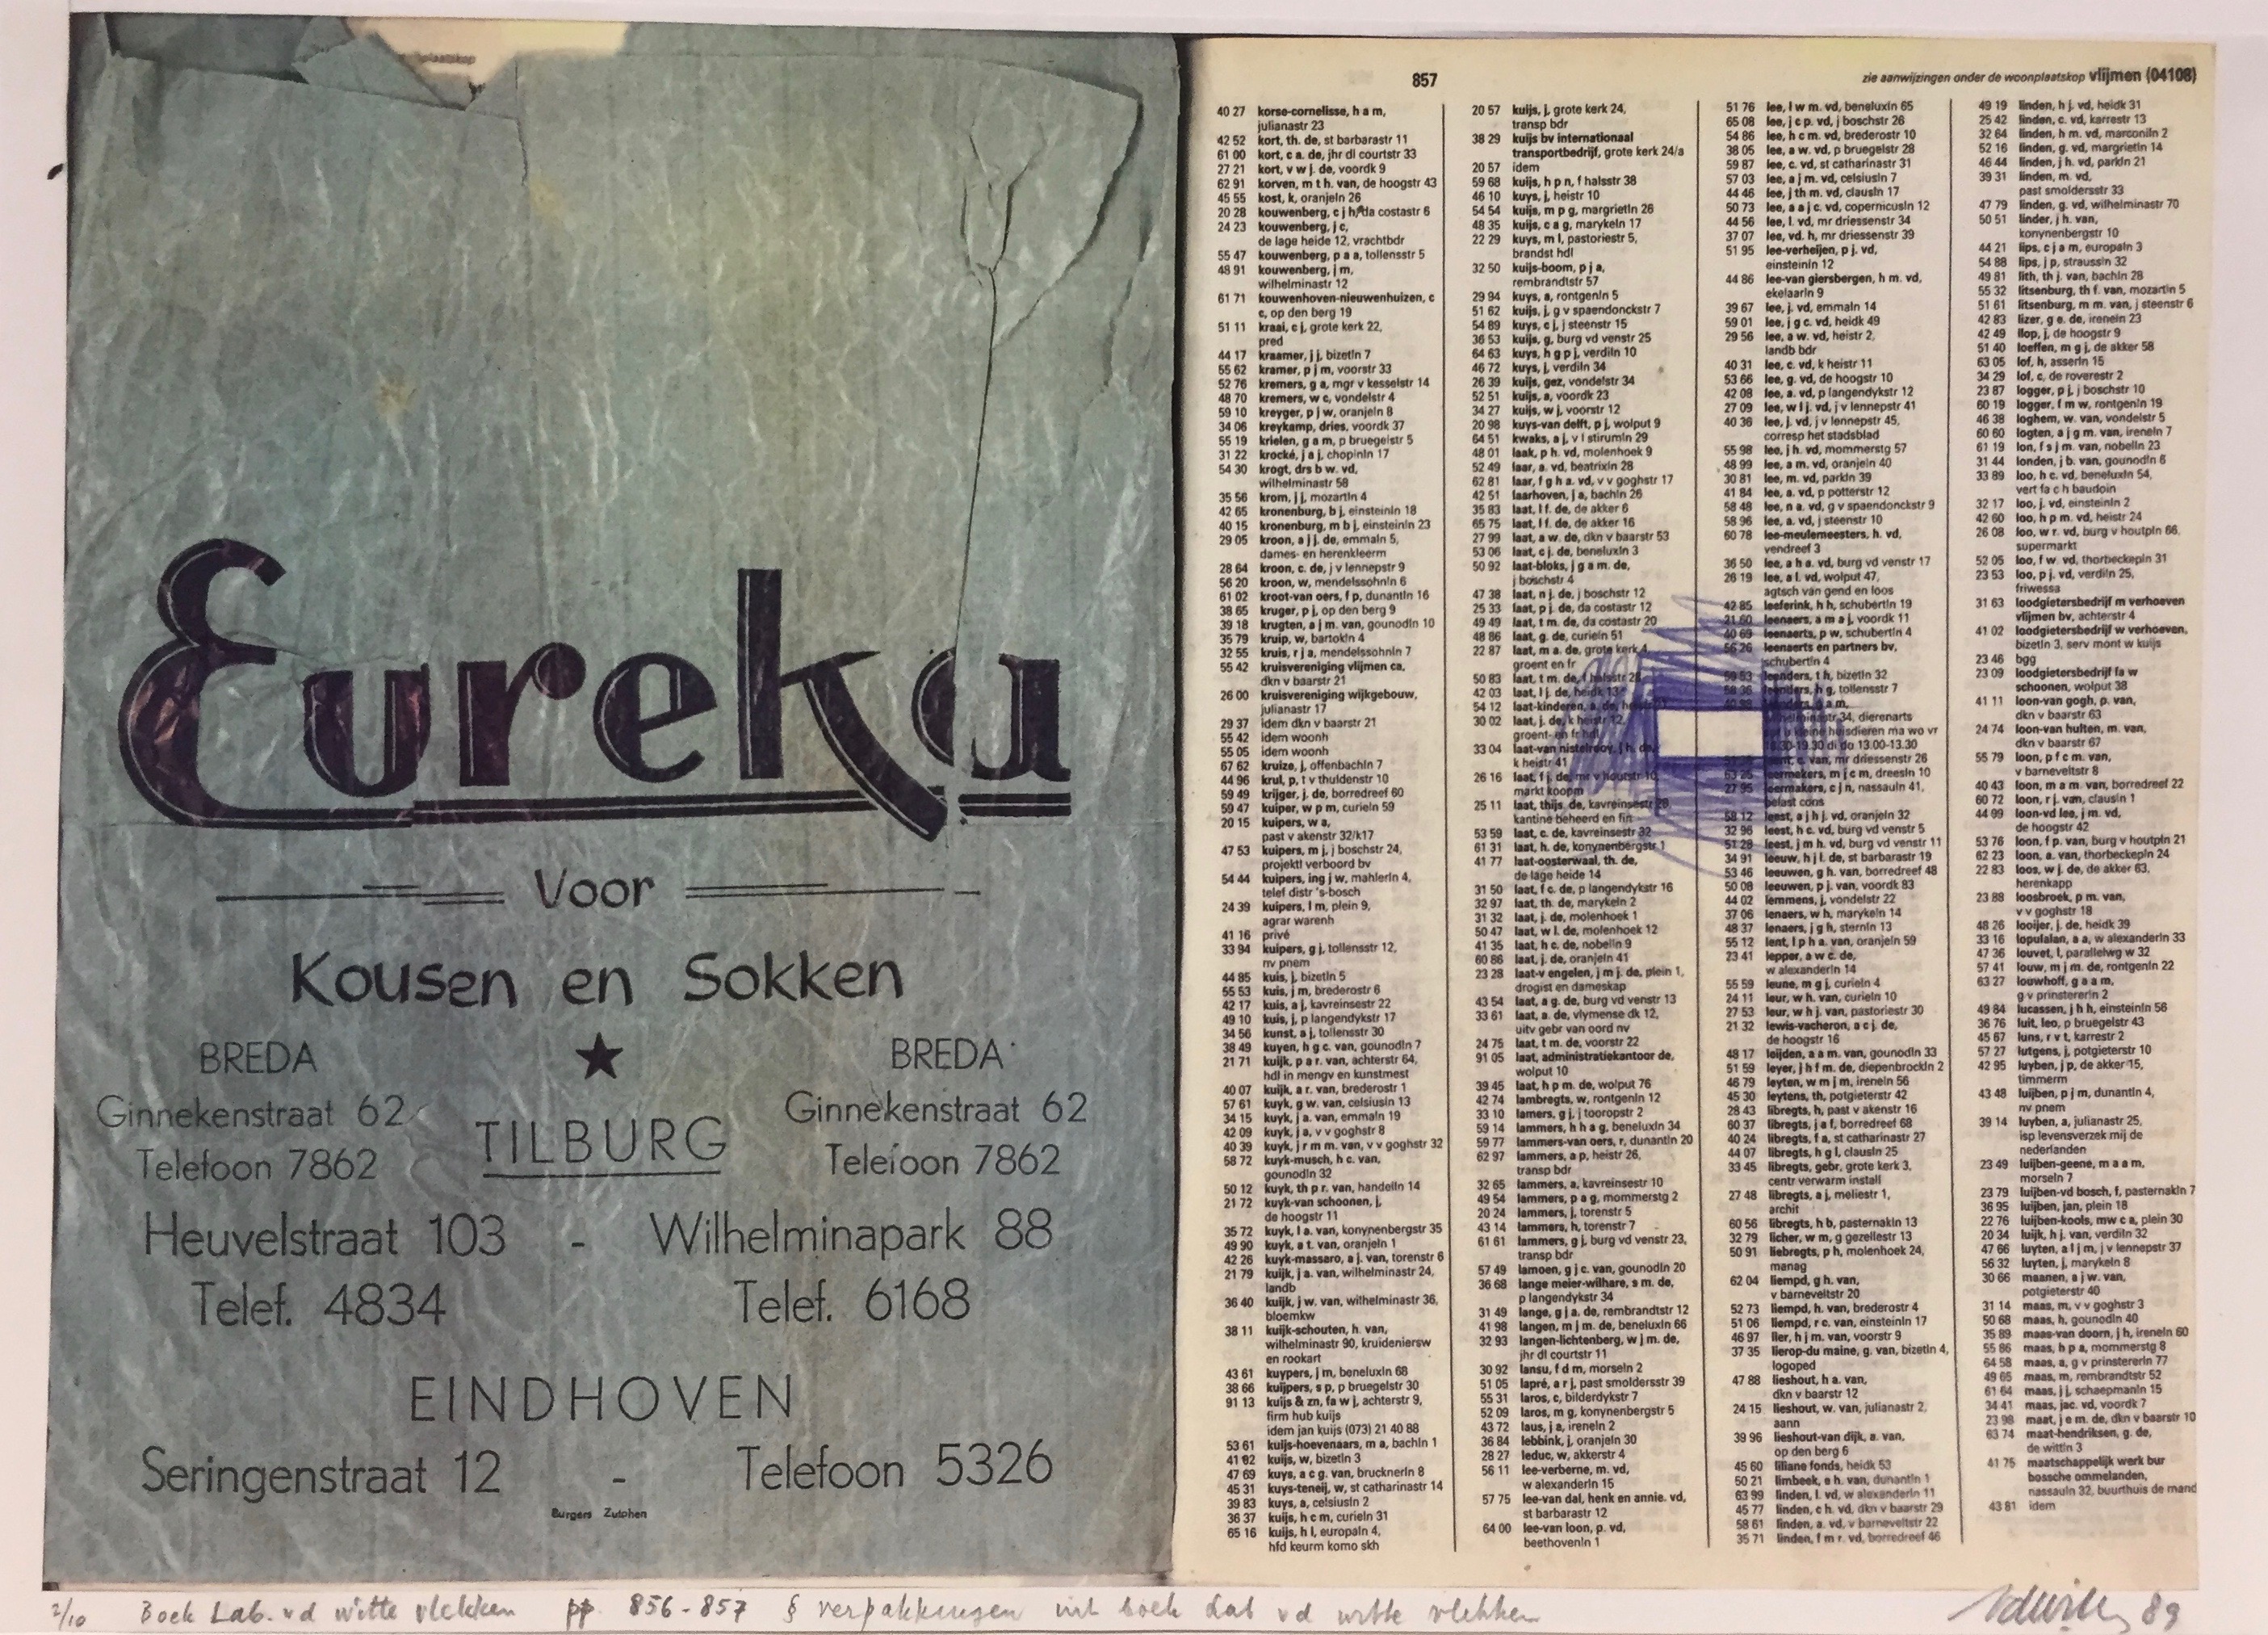 plaatskop
Eureka
Voor
Kousen en Sokken
★
BREDA
Ginnekenstraat 62
Telefoon 7862
BREDA
Ginnekenstraat 62
Telefoon 7862
TILBURG
Heuvelstraat 103 - Wilhelminapark 88
Telef. 4834 Telef. 6168
EINDHOVEN
Seringenstraat 12 - Telefoon 5326
Burgers Zutphen
857
zie aanwijzingen onder de woonplaatskop vlijmen (04108)
40 27 korse-cornelisse, h a m,
julianastr 23
42 52 kort, th. de, st barbarastr 11
61 00 kort, c a. de, jhr dl courtstr 33
27 21 kort, v w j. de, voordk 9
62 91 korven, m t h. van, de hoogstr 43
45 55 kost, k, oranjeln 26
20 28 kouwenberg, c j h, da costastr 6
24 23 kouwenberg, j c,
de lage heide 12, vrachtbdr
55 47 kouwenberg, p a a, tollensstr 5
48 91 kouwenberg, j m,
wilhelminastr 12
61 71 kouwenhoven-nieuwenhuizen, c
c, op den berg 19
51 11 kraai, c j, grote kerk 22,
pred
44 17 kraamer, j j, bizetln 7
55 62 kramer, p j m, voorstr 33
52 76 kremers, g a, mgr v kesselstr 14
48 70 kremers, w c, vondelstr 4
59 10 kreyger, p j w, oranjeln 8
34 06 kreykamp, dries, voordk 37
55 19 krielen, g a m, p bruegelstr 5
31 22 krocké, j a j, chopinln 17
54 30 krogt, drs b w. vd,
wilhelminastr 58
35 56 krom, j j, mozartln 4
42 65 kronenburg, b j, einsteinln 18
40 15 kronenburg, m b j, einsteinln 23
29 05 kroon, a j j. de, emmaln 5,
dames- en herenkleerm
28 64 kroon, c. de, j v lennepstr 9
56 20 kroon, w, mendelssohnln 6
61 02 kroot-van oers, f p, dunantln 16
38 65 kruger, p j, op den berg 9
39 18 krugten, a j m. van, gounodln 10
35 79 kruip, w, bartokln 4
32 55 kruis, r j a, mendelssohnln 7
55 42 kruisvereniging vlijmen ca,
dkn v baarstr 21
26 00 kruisvereniging wijkgebouw,
julianastr 17
29 37 idem dkn v baarstr 21
55 42 idem woonh
55 05 idem woonh
67 62 kruize, j, offenbachln 7
44 96 krul, p, t v thuldenstr 10
59 49 krijger, j. de, borredreef 60
59 47 kuiper, w p m, curieln 59
20 15 kuipers, w a,
past v akenstr 32/k17
47 53 kuipers, m j, j boschstr 24,
projektl verboord bv
54 44 kuipers, ing j w, mahlerln 4,
telef distr 's-bosch
24 39 kuipers, l m, plein 9,
agrar warenh
41 16 privé
33 94 kuipers, g j, tollensstr 12,
nv pnem
44 85 kuis, j, bizetln 5
55 53 kuis, j m, brederostr 6
42 17 kuis, a j, kavreinsestr 22
49 10 kuis, j, p langendykstr 17
34 56 kunst, a j, tollensstr 30
38 49 kuyen, h g c. van, gounodln 7
21 71 kuijk, p a r. van, achterstr 64,
hdl in mengv en kunstmest
40 07 kuijk, a r. van, brederostr 1
57 61 kuyk, g w. van, celsiusln 13
34 15 kuyk, j a. van, emmaln 19
42 09 kuyk, j a, v v goghstr 8
40 39 kuyk, j r m m. van, v v goghstr 32
58 72 kuyk-musch, h c. van,
gounodln 32
50 12 kuyk, th p r. van, handelln 14
21 72 kuyk-van schoonen, j,
de hoogstr 11
35 72 kuyk, l a. van, konynenbergstr 35
49 90 kuyk, a t. van, oranjeln 1
42 26 kuyk-massaro, a j. van, torenstr 6
21 79 kuijk, j a. van, wilhelminastr 24,
landb
36 40 kuijk, j w. van, wilhelminastr 36,
bloemkw
38 11 kuijk-schouten, h. van,
wilhelminastr 90, kruideniersw
en rookart
43 61 kuypers, j m, beneluxln 68
38 66 kuijpers, s p, p bruegelstr 30
91 13 kuijs & zn, fa w j, achterstr 9,
firm hub kuijs
idem jan kuijs (073) 21 40 88
53 61 kuijs-hoevenaars, m a, bachln 1
41 82 kuijs, w, bizetln 3
47 69 kuys, a c g. van, brucknerln 8
45 31 kuys-teneij, w, st catharinastr 14
39 83 kuys, a, celsiusln 2
36 37 kuijs, h c m, curieln 31
65 16 kuijs, h l, europaln 4,
hfd keurm komo skh
20 57 kuijs, j, grote kerk 24,
transp bdr
38 29 kuijs bv internationaal
transportbedrijf, grote kerk 24/a
20 57 idem
59 68 kuijs, h p n, f halsstr 38
46 10 kuys, j, heistr 10
54 54 kuijs, m p g, margrietln 26
48 35 kuijs, c a g, marykeln 17
22 29 kuys, m l, pastoriestr 5,
brandst hdl
32 50 kuijs-boom, p j a,
rembrandtstr 57
29 94 kuys, a, rontgenln 5
51 62 kuijs, j, g v spaendonckstr 7
54 89 kuys, c j, j steenstr 15
36 53 kuijs, g, burg vd venstr 25
64 63 kuys, h g p j, verdiln 10
46 72 kuys, j, verdiln 34
26 39 kuijs, gez, vondelstr 34
52 51 kuijs, a, voordk 23
34 27 kuijs, w j, voorstr 12
20 98 kuys-van delft, p j, wolput 9
64 51 kwaks, a j, v l stirumln 29
48 01 laak, p h. vd, molenhoek 9
52 49 laar, a. vd, beatrixln 28
62 81 laar, f g h a. vd, v v goghstr 17
42 51 laarhoven, j a, bachln 26
35 83 laat, l f. de, de akker 6
65 75 laat, l f. de, de akker 16
27 99 laat, a w. de, dkn v baarstr 53
53 06 laat, c j. de, beneluxln 3
50 92 laat-bloks, j g a m. de,
j boschstr 4
47 38 laat, n j. de, j boschstr 12
25 33 laat, p j. de, da costastr 12
49 49 laat, t m. de, da costastr 20
48 86 laat, g. de, curieln 51
22 87 laat, m a. de, grote kerk 4,
groent en fr
50 83 laat, t m. de, f halsstr
42 03 laat, l j. de, heidk 13
54 12 laat-kinderen, a. de,
30 02 laat, j. de, k heistr 12,
groent- en fr hdl
33 04 laat-van nistelrooy, j h. de,
k heistr 41
26 16 laat, f j. de, mr v houtstr 10,
markt koopm
25 11 laat, thijs. de, kavreinsestr
kantine beheerd en fin
53 59 laat, c. de, kavreinsestr 32
61 31 laat, h. de, konynenbergstr 1
41 77 laat-oosterwaal, th. de,
de lage heide 14
31 50 laat, f c. de, p langendykstr 16
32 97 laat, th. de, marykeln 2
31 32 laat, j. de, molenhoek 1
50 47 laat, w l. de, molenhoek 12
41 35 laat, h c. de, nobelln 9
60 86 laat, j. de, oranjeln 41
23 28 laat-v engelen, j m j. de, plein 1,
drogist en dameskap
43 54 laat, a g. de, burg vd venstr 13
33 61 laat, a. de, vlymense dk 12,
uitv gebr van oord nv
24 75 laat, t m. de, voorstr 22
91 05 laat, administratiekantoor de,
wolput 10
39 45 laat, h p m. de, wolput 76
42 74 lambregts, w, rontgenln 12
33 10 lamers, g j, j tooropstr 2
59 14 lammers, h h a g, beneluxln 34
59 77 lammers-van oers, r, dunantln 20
62 97 lammers, a p, heistr 26,
transp bdr
32 65 lammers, a, kavreinsestr 10
49 54 lammers, p a g, mommerstg 2
20 24 lammers, j, torenstr 5
43 14 lammers, h, torenstr 7
61 61 lammers, g j, burg vd venstr 23,
transp bdr
57 49 lamoen, g j c. van, gounodln 20
36 68 lange meier-wilhare, s m. de,
p langendykstr 34
31 49 lange, g j a. de, rembrandtstr 12
41 98 langen, m j m. de, beneluxln 66
32 93 langen-lichtenberg, w j m. de,
jhr dl courtstr 11
30 92 lansu, f d m, morseln 2
51 05 lapré, a r j, past smoldersstr 39
55 31 laros, c, bilderdykstr 7
52 09 laros, m g, konynenbergstr 5
43 72 laus, j a, ireneln 2
36 84 lebbink, j, oranjeln 30
28 27 leduc, w, akkerstr 4
56 11 lee-verberne, m. vd,
w alexanderln 15
57 75 lee-van dal, henk en annie. vd,
st barbarastr 12
64 00 lee-van loon, p. vd,
beethovenln 1
51 76 lee, l w m. vd, beneluxln 65
65 08 lee, j c p. vd, j boschstr 26
54 86 lee, h c m. vd, brederostr 10
38 05 lee, a w. vd, p bruegelstr 28
59 87 lee, c. vd, st catharinastr 31
57 03 lee, a j m. vd, celsiusln 7
44 46 lee, j th m. vd, clausln 17
50 73 lee, a a j c. vd, copernicusln 12
44 56 lee, l. vd, mr driessenstr 34
37 07 lee, vd. h, mr driessenstr 39
51 95 lee-verheijen, p j. vd,
einsteinln 12
44 86 lee-van giersbergen, h m. vd,
ekelaarln 9
39 67 lee, j. vd, emmaln 14
59 01 lee, j g c. vd, heidk 49
29 56 lee, a w. vd, heistr 2,
landb bdr
40 31 lee, c. vd, k heistr 11
53 66 lee, g. vd, de hoogstr 10
42 08 lee, a. vd, p langendykstr 12
27 09 lee, w l j. vd, j v lennepstr 41
40 36 lee, j. vd, j v lennepstr 45,
corresp het stadsblad
55 98 lee, j h. vd, mommerstg 57
48 99 lee, a m. vd, oranjeln 40
30 81 lee, m. vd, parkln 39
41 84 lee, a. vd, p potterstr 12
58 48 lee, n a. vd, g v spaendonckstr 9
58 96 lee, a. vd, j steenstr 10
60 78 lee-meulemeesters, h. vd,
vendreef 3
36 50 lee, a h a. vd, burg vd venstr 17
26 19 lee, a l. vd, wolput 47,
agtsch van gend en loos
42 85 leeferink, h h, schubertln 19
21 60 leenaers, a m a j, voordk 11
40 69 leenaerts, p w, schubertln 4
56 26 leenaerts en partners bv,
schubertln 4
59 53 leenders, t h, bizetln 32
leenders, h g, tollensstr 7
34, dierenarts
huisdieren ma wo vr
18.30-19.30 di do 13.00-13.30
van, mr driessenstr 26
leermakers, m j c m, dreesln 10
27 95 leermakers, c j n, nassauln 41,
belast cons
58 12 leest, a j h j. vd, oranjeln 32
32 96 leest, h c. vd, burg vd venstr 5
51 28 leest, j m h. vd, burg vd venstr 11
34 91 leeuw, h j l. de, st barbarastr 19
53 46 leeuwen, g h. van, borredreef 48
50 08 leeuwen, p j. van, voordk 83
44 02 lemmens, j, vondelstr 22
37 06 lenaers, w h, marykeln 14
48 37 lenaers, j g h, sternln 13
55 12 lent, l p h a. van, oranjeln 59
23 41 lepper, a w c. de,
w alexanderln 14
55 59 leune, m g j, curieln 4
24 11 leur, w h. van, curieln 10
27 53 leur, w h j. van, pastoriestr 30
21 32 lewis-vacheron, a c j. de,
de hoogstr 16
48 17 leijden, a a m. van, gounodln 33
51 59 leyer, j h f m. de, diepenbrockln 2
46 79 leyten, w m j m, ireneln 56
45 30 leytens, th, potgieterstr 42
28 43 libregts, h, past v akenstr 16
60 37 libregts, j a f, borredreef 68
40 24 libregts, f a, st catharinastr 27
44 07 libregts, h g l, clausln 25
33 45 libregts, gebr, grote kerk 3,
centr verwarm install
27 48 libregts, a j, meliestr 1,
archit
60 56 libregts, h b, pasternakln 13
32 79 licher, w m, g gezellestr 13
50 91 liebregts, p h, molenhoek 24,
manag
62 04 liempd, g h. van,
v barneveltstr 20
52 73 liempd, h. van, brederostr 4
51 06 liempd, r c. van, einsteinln 17
46 97 lier, h j m. van, voorstr 9
37 35 lierop-du maine, g. van, bizetln 4,
logoped
47 88 lieshout, h a. van,
dkn v baarstr 12
24 15 lieshout, w. van, julianastr 2,
aann
39 96 lieshout-van dijk, a. van,
op den berg 6
45 60 liliane fonds, heidk 53
50 21 limbeek, e h. van, dunantln 1
63 99 linden, l. vd, w alexanderln 11
45 77 linden, c h. vd, dkn v baarstr 29
58 61 linden, a. vd, v barneveltstr 22
35 71 linden, f m r. vd, borredreef 46
49 19 linden, h j. vd, heidk 31
25 42 linden, c. vd, karrestr 13
32 64 linden, h m. vd, marconiln 2
52 16 linden, g. vd, margrietln 14
46 44 linden, j h. vd, parkln 21
39 31 linden, m. vd,
past smoldersstr 33
47 79 linden, g. vd, wilhelminastr 70
50 51 linder, j h. van,
konynenbergstr 10
44 21 lips, c j a m, europaln 3
54 88 lips, j p, straussln 32
49 81 lith, th j. van, bachln 28
55 32 litsenburg, th f. van, mozartln 5
51 61 litsenburg, m m. van, j steenstr 6
42 83 lizer, g e. de, ireneln 23
42 49 llop, j, de hoogstr 9
51 40 loeffen, m g j, de akker 58
63 05 lof, h, asserln 15
34 29 lof, c, de roverestr 2
23 87 logger, p j, j boschstr 10
60 19 logger, f m w, rontgenln 19
46 38 loghem, w. van, vondelstr 5
60 60 logten, a j g m. van, ireneln 7
61 19 lon, f s j m. van, nobelln 23
31 44 londen, j b. van, gounodln 6
33 89 loo, h c. vd, beneluxln 54,
vert fa c h baudoin
32 17 loo, j. vd, einsteinln 2
42 60 loo, h p m. vd, heistr 24
26 08 loo, w r. vd, burg v houtpln 66,
supermarkt
52 05 loo, f w. vd, thorbeckepln 31
23 53 loo, p j. vd, verdiln 25,
friwessa
31 63 loodgietersbedrijf m verhoeven
vlijmen bv, achterstr 4
41 02 loodgietersbedrijf w verhoeven,
bizetln 3, serv mont w kuijs
23 46 bgg
23 09 loodgietersbedrijf fa w
schoonen, wolput 38
41 11 loon-van gogh, p. van,
dkn v baarstr 63
24 74 loon-van hulten, m. van,
dkn v baarstr 67
55 79 loon, p f c m. van,
v barneveltstr 8
40 43 loon, m a m. van, borredreef 22
60 72 loon, r j. van, clausln 1
44 99 loon-vd lee, j m. vd,
de hoogstr 42
53 76 loon, f p. van, burg v houtpln 21
62 23 loon, a. van, thorbeckepln 24
22 83 loos, w j. de, de akker 63,
herenkapp
23 88 loosbroek, p m. van,
v v goghstr 18
48 26 looijer, j. de, heidk 39
33 16 lopulalan, a a, w alexanderln 33
47 36 louvet, l, parallelwg w 32
57 41 louw, m j m. de, rontgenln 22
63 27 louwhoff, g a a m,
g v prinstererln 2
49 84 lucassen, j h h, einsteinln 56
36 76 luit, leo, p bruegelstr 43
45 67 luns, r v t, karrestr 2
57 27 lutgens, j, potgieterstr 10
42 95 luyben, j p, de akker 15,
timmerm
43 48 luijben, p j m, dunantln 4,
nv pnem
39 14 luyben, a, julianastr 25,
isp levensverzek mij de
nederlanden
23 49 luijben-geene, m a a m,
morseln 7
23 79 luijben-vd bosch, f, pasternakln 7
36 95 luijben, jan, plein 18
22 76 luijben-kools, mw c a, plein 30
20 34 luijk, h j. van, verdiln 32
47 66 luyten, a l j m, j v lennepstr 37
56 32 luyten, j, marykeln 8
30 66 maanen, a j w. van,
potgieterstr 40
31 14 maas, m, v v goghstr 3
50 68 maas, h, gounodln 40
35 89 maas-van doorn, j h, ireneln 60
55 86 maas, h p a, mommerstg 8
64 58 maas, a, g v prinstererln 77
49 65 maas, m, rembrandtstr 52
61 64 maas, j j, schaepmanln 15
34 41 maas, jac. vd, voordk 7
23 98 maat, j e m. de, dkn v baarstr 10
63 74 maat-hendriksen, g. de,
de wittln 3
41 75 maatschappelijk werk bur
bossche ommelanden,
nassauln 32, buurthuis de mand
43 81 idem
2/10 Boek Lab. vd witte vlekken pp 856-857 § verpakkingen uit boek Lab vd witte vlekken
89